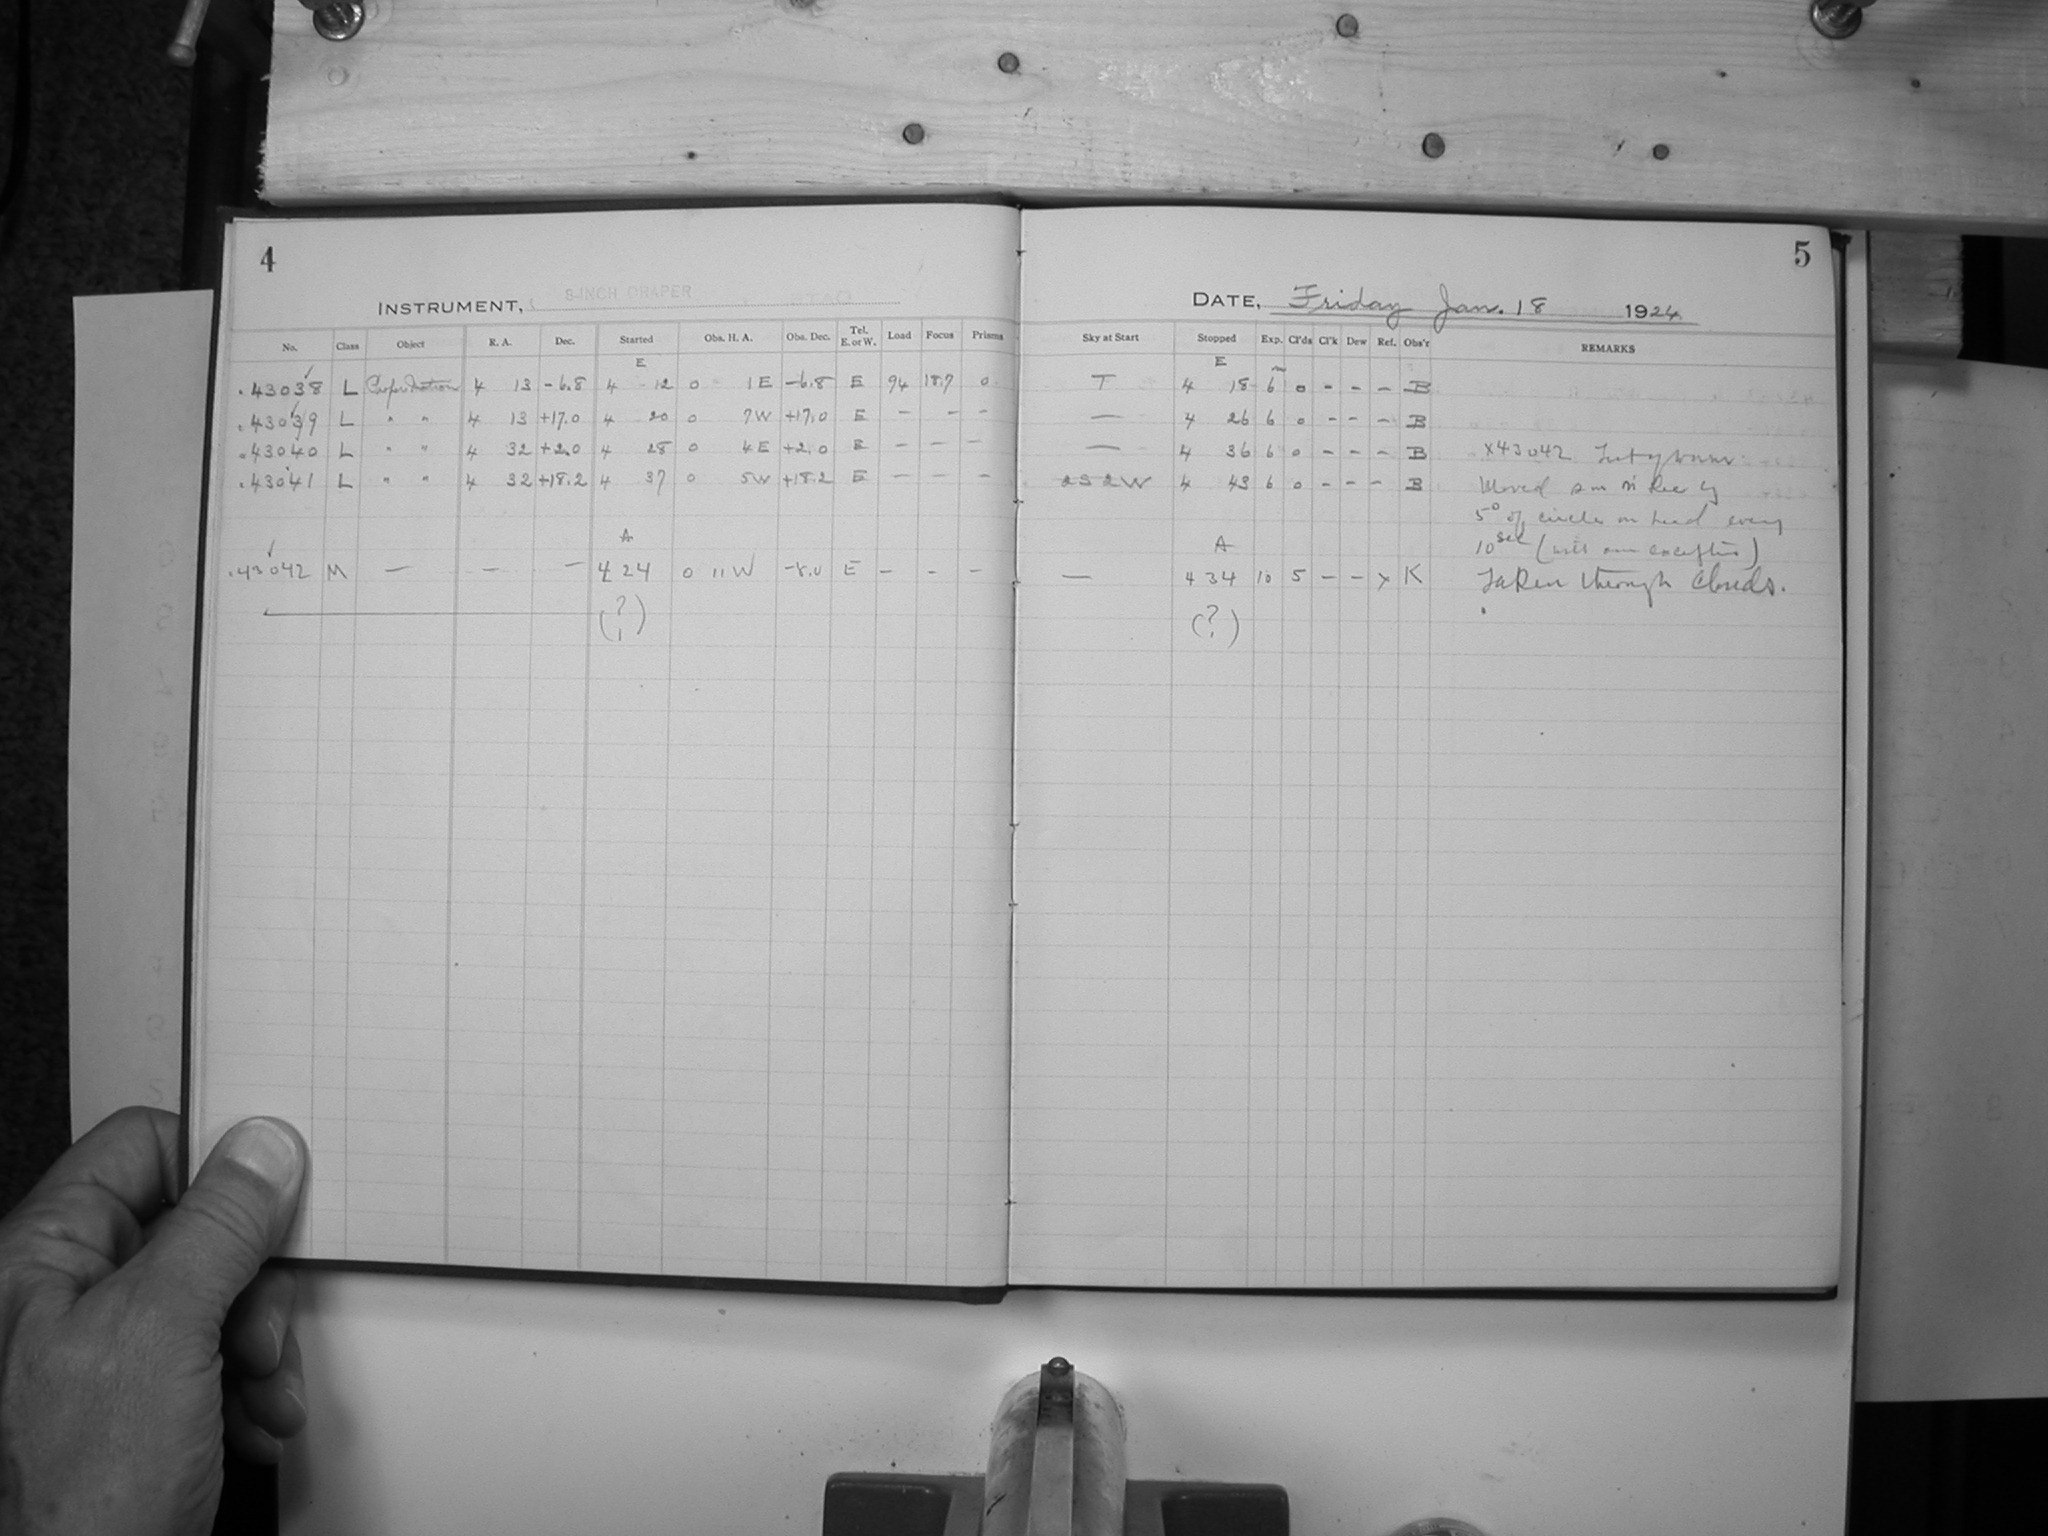 4
INSTRUMENT, 8-INCH DRAPER
No. Class Object R. A. Dec. Started Obs. H. A. Obs. Dec. Tel. E. or W. Load Focus Prisms
E
.43038 L 4 13 -6.8 4 12 0 1 E -6.8 E 94 18.7 0
.43039 L " " 4 13 +17.0 4 20 0 7W +17.0 E - - -
.43040 L " " 4 32 +2.0 4 28 0 4E +2.0 E - - -
.43041 L " " 4 32 +18.2 4 37 0 5W +18.2 E - - -
A
.43042 M - - - 4 24 0 11W -8.0 E - - -
(?)
5
DATE, Friday Jan. 18 1924
Sky at Start Stopped Exp. Cl'ds Cl'k Dew Ref. Obs'r REMARKS
E
T 4 18 6 0 - - - B
— 4 26 6 0 - - - B
— 4 36 6 0 - - - B x43042
2S 2W 4 43 6 0 - - - B Moved in Dec by
5° of circle on head every
A
10 sec (with one exception)
— 4 34 10 5 - - x K Taken through clouds.
(?)